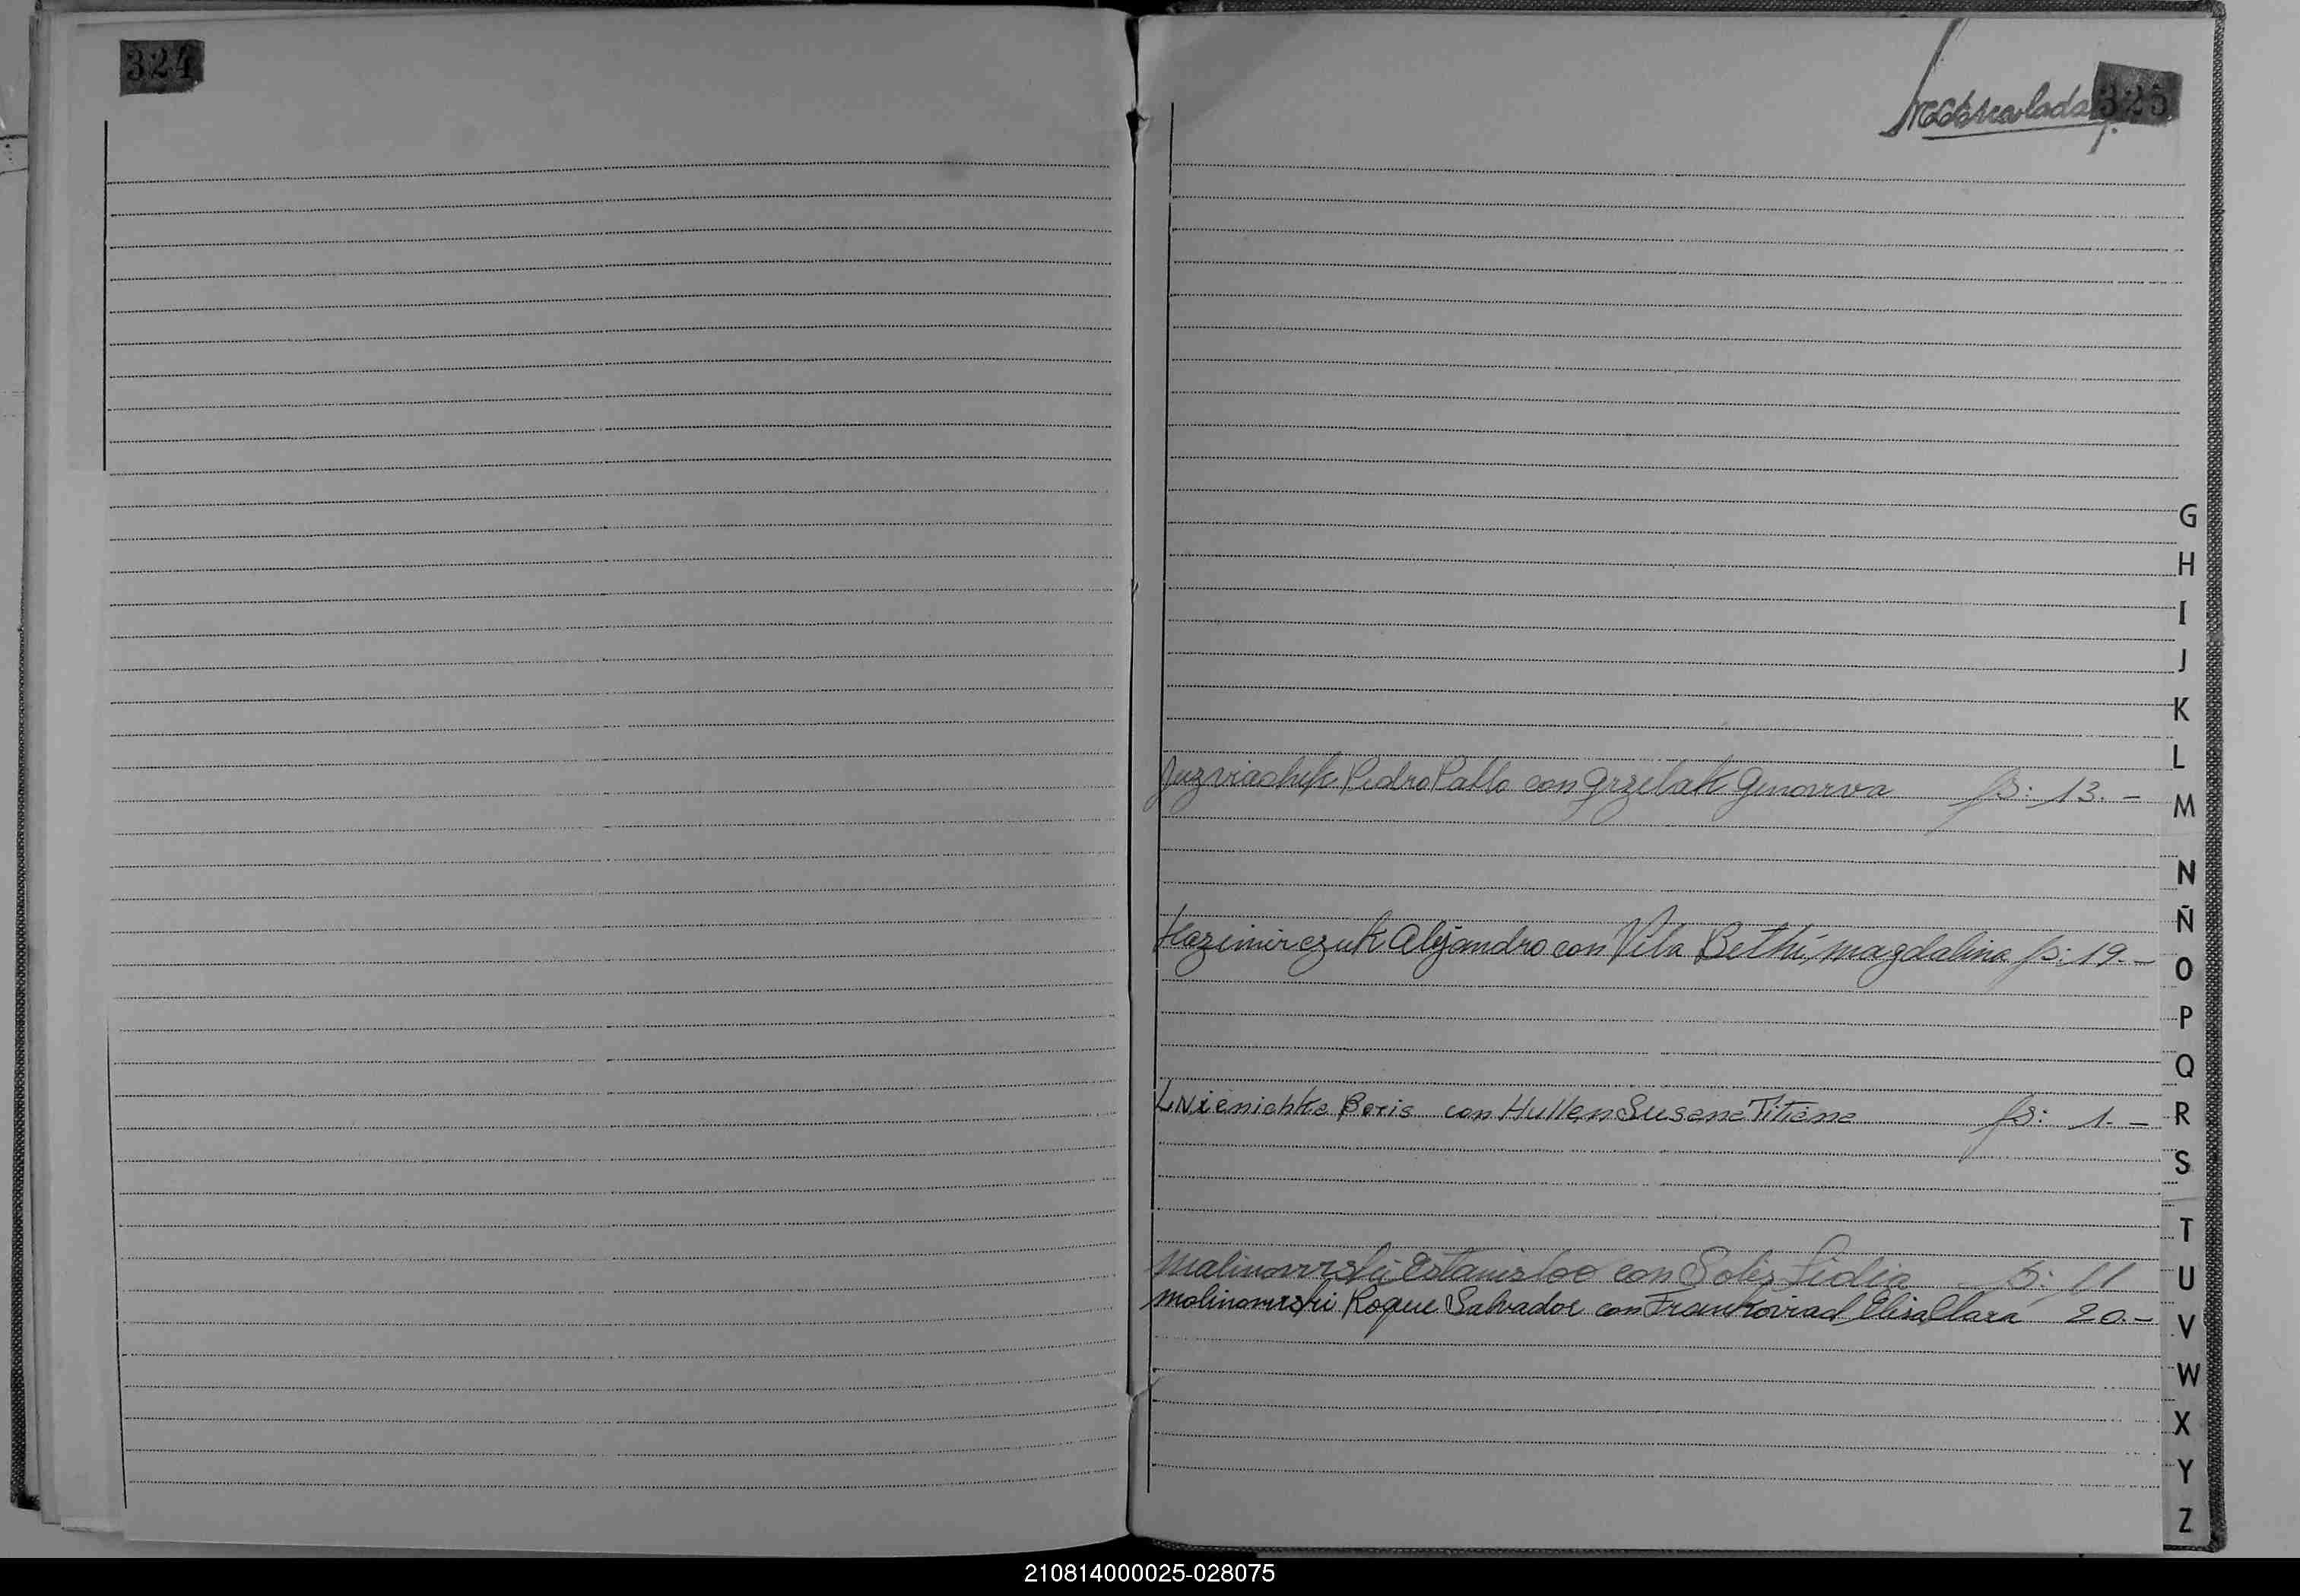 324
325
Juzviachuk Pedro Pablo con Grzelak Genoveva fs: 13.-
Kazimirczuk Alejandro con Vila Bethi, Magdalina fs: 19.-
Boris con Hullen Susana Titiana fs: 1.-
Malinowski Estanisloo con Solis Lidia fs: 11
Malinowski Roque Salvador con Elisa Clara 20.-
G
H
I
J
K
L
M
N
Ñ
O
P
Q
R
S
T
U
V
W
X
Y
Z
210814000025-028075